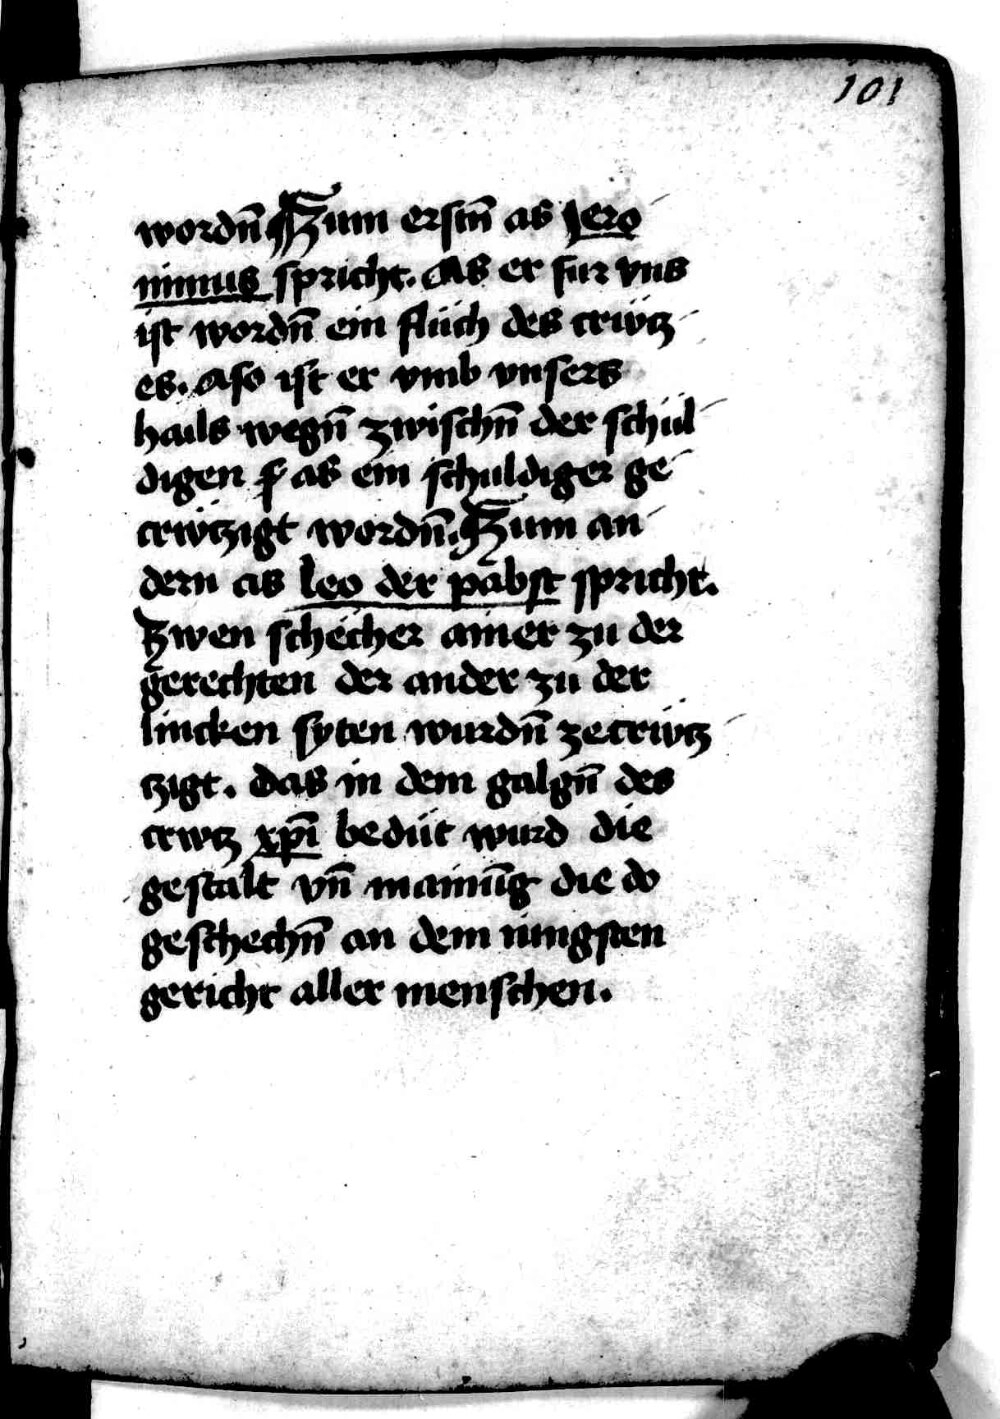 101
wordn̄ Zum erstn̄ as Jero
nimus spricht. As er fur vns
ist wordn̄ ein flüch des crwtz
es. Aso ist er vmb vnsers
hails wegn̄ zwischn̄ der schul
digen as ein schuldiger ge
crwtzigt wordn̄. Zum an
dern as leo der pabst spricht.
Zwen schecher ainer zu der
gerechten der ander zu der
lincken syten wurdn̄ zecrwtz
tzigt. Das in dem galgn̄ des
crwtz xp̄i bedüt wurd die
gestalt vn̄ mainūg die do
geschechn̄ an dem iungsten
gericht aller menschen.